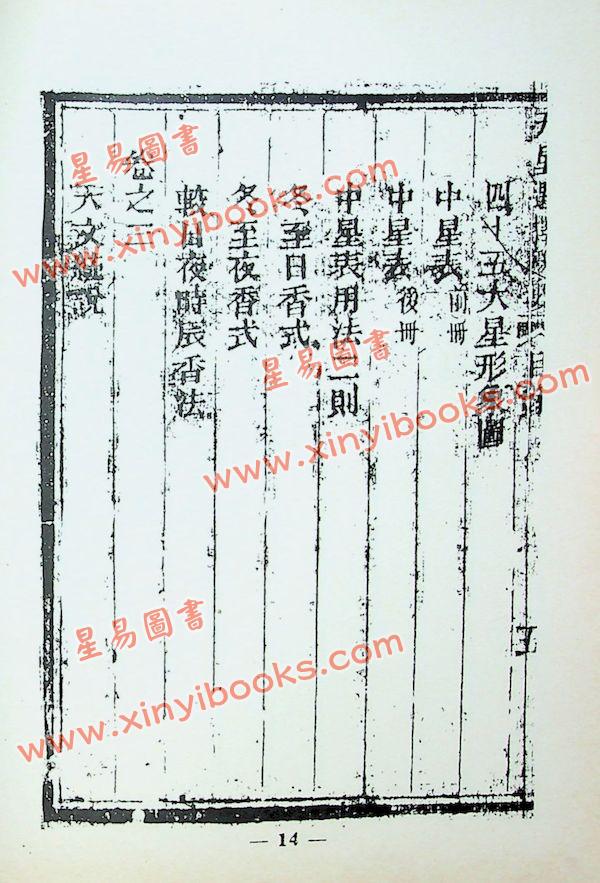 四十五大星形象圖
中星表 前冊
中星表 後冊
中星表用法二則
冬至日香式
冬至夜香式
較日夜時辰香法
卷之三
天文 說
— 14 —
星易圖書
www.xinyibooks.com
星易圖書
www.xinyibooks.com
星易圖書
www.xinyibooks.com